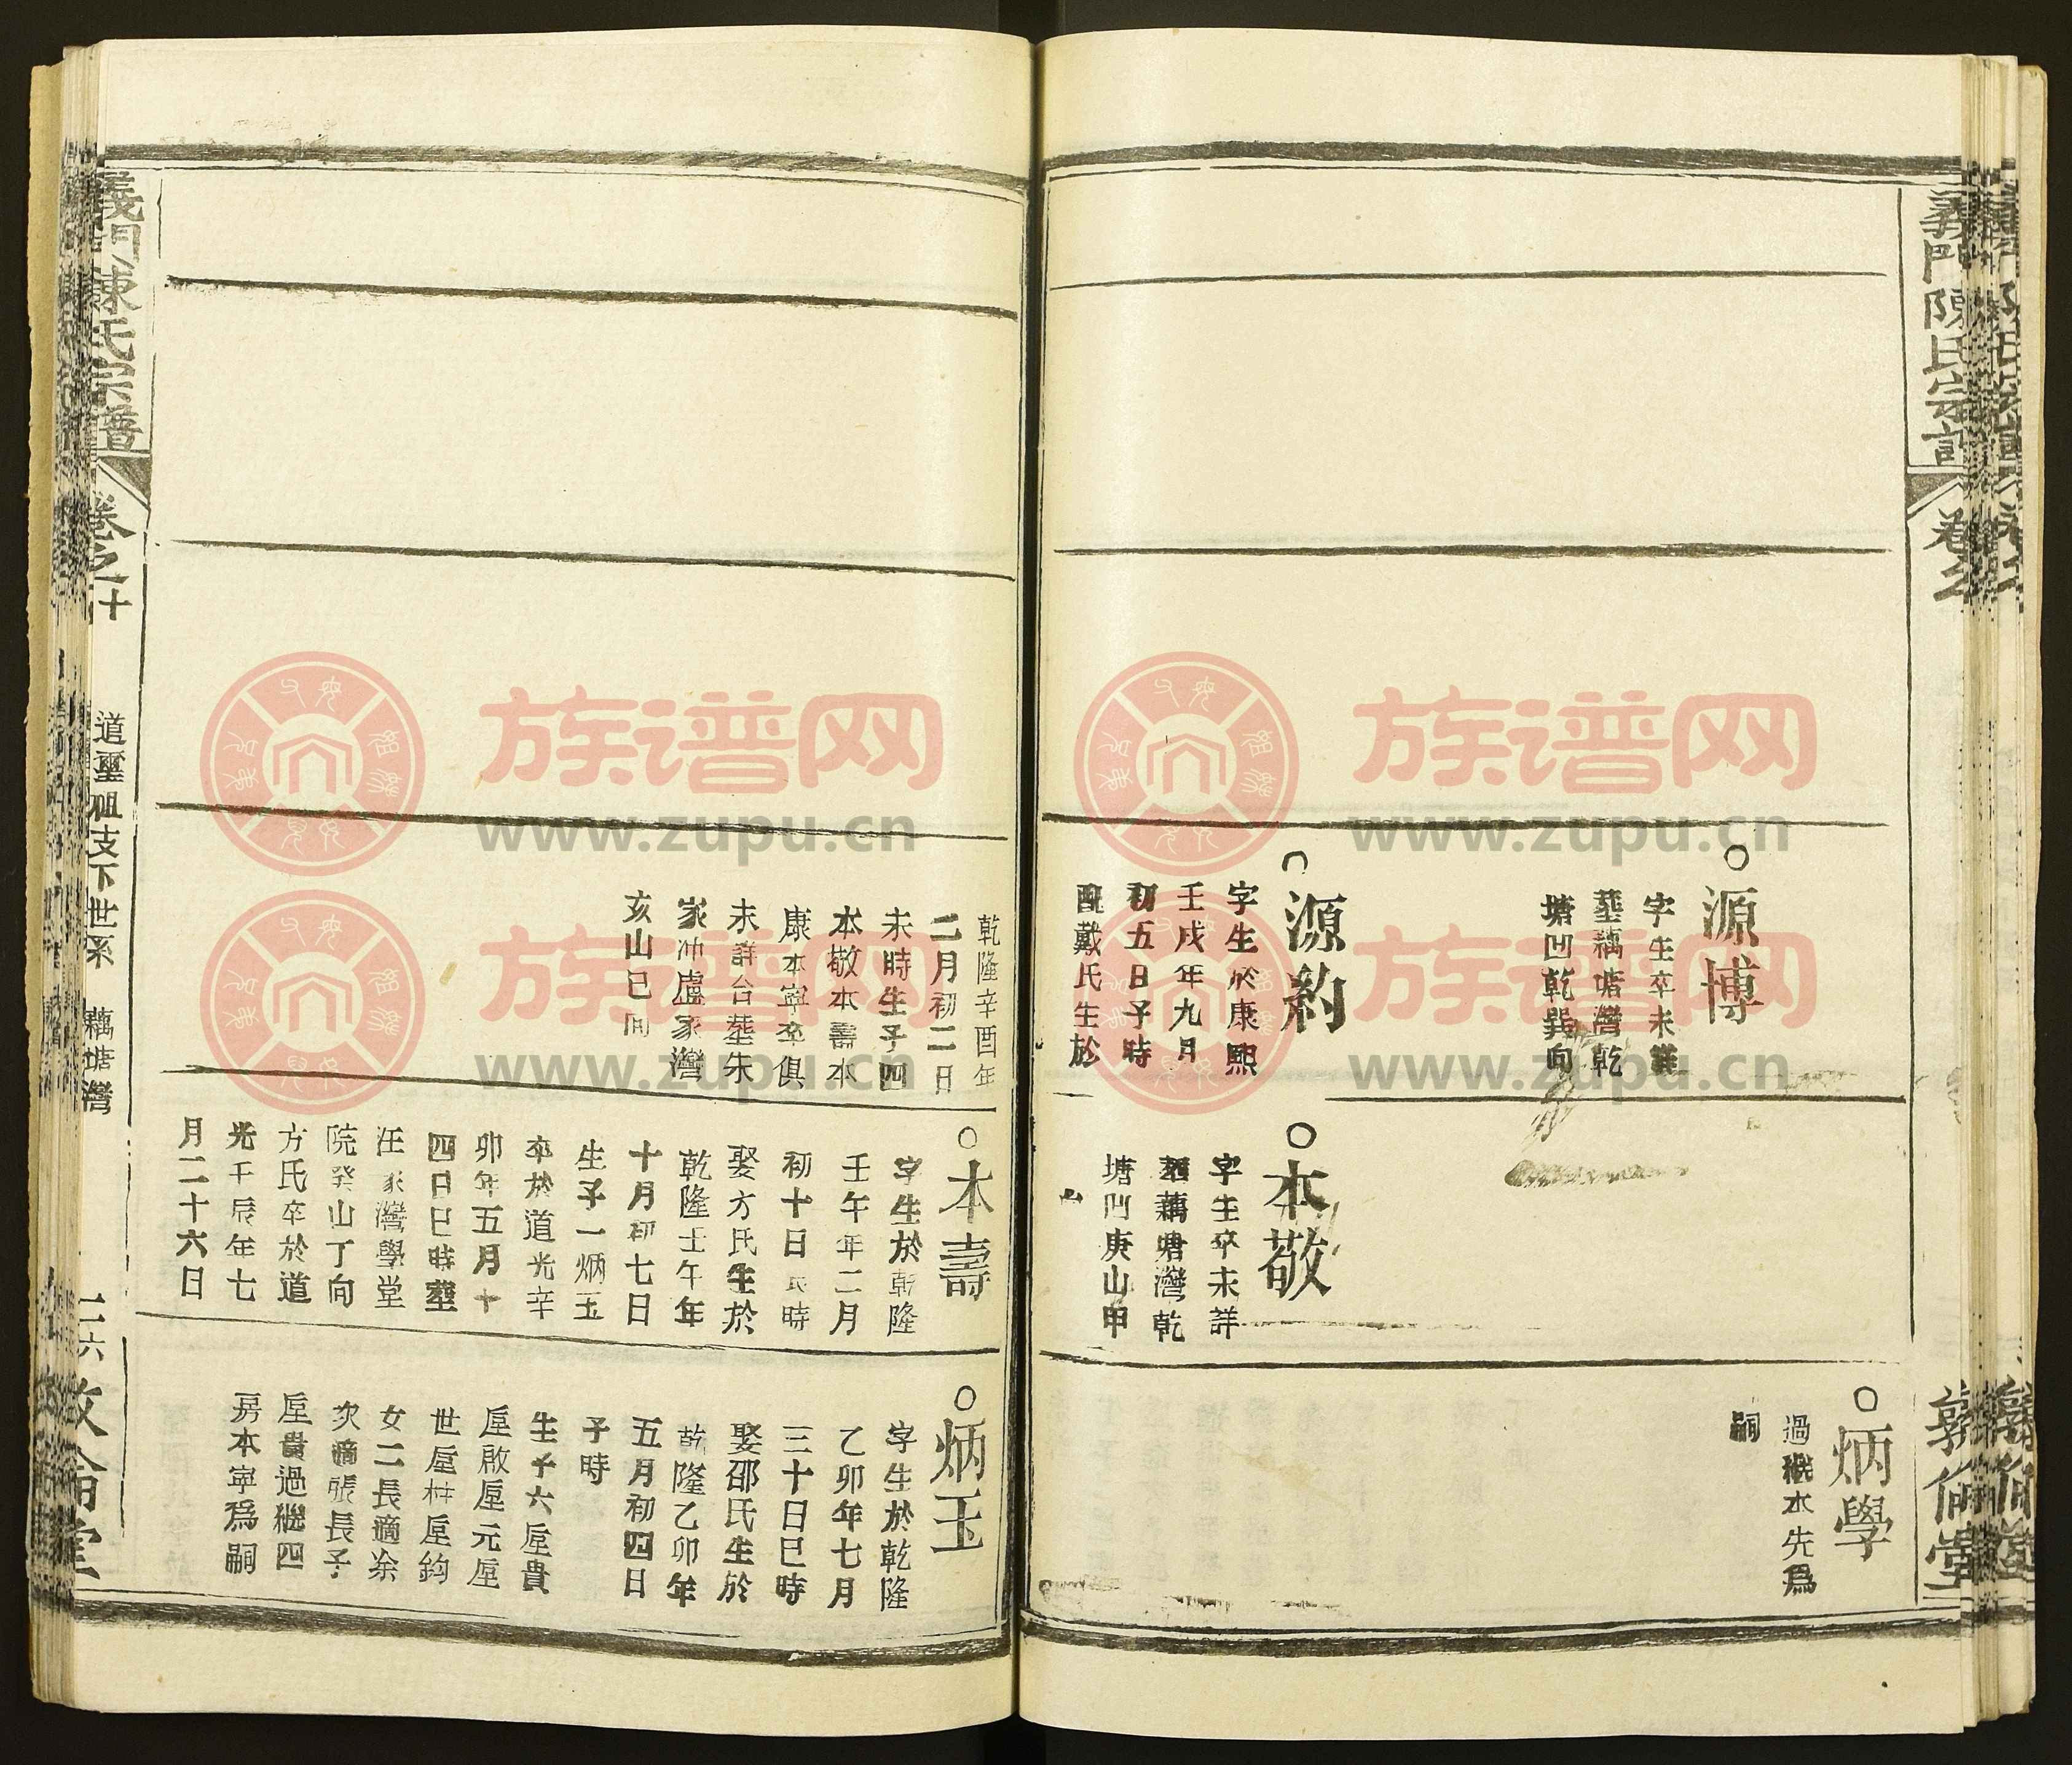 義門陳氏宗譜
卷之
敦倫堂
源博
字生卒未詳
塟藕塘灣乾
塘凹乾巽向
源約
字生於康熙
壬戌年九月
初五日子時
配戴氏生於
炳學
過繼本先爲
嗣
本敬
字生卒未詳
塟藕塘灣乾
塘凹庚山甲
向
乾隆辛酉年
二月初二日
未時生子四
本敬本壽本
康本寧卒俱
未詳合塟朱
家冲盧家灣
亥山巳向
本壽
字生於乾隆
壬午年二月
初十日辰時
娶方氏生於
乾隆壬午年
十月初七日
生子一炳玉
卒於道光辛
卯年五月十
四日巳時塟
汪家灣學堂
院癸山丁向
方氏卒於道
光壬辰年七
月二十六日
炳玉
字生於乾隆
乙卯年七月
三十日巳時
娶邵氏生於
乾隆乙卯年
五月初四日
子時
生子六垕貴
垕啟垕元垕
世垕材垕鈞
女二長適余
次適張長子
垕貴過繼四
房本寧爲嗣
義門陳氏宗譜
卷之十
道璽祖支下世系
藕塘灣
二六
敦倫堂
族谱网
www.zupu.cn
族谱网
www.zupu.cn
族谱网
www.zupu.cn
族谱网
www.zupu.cn